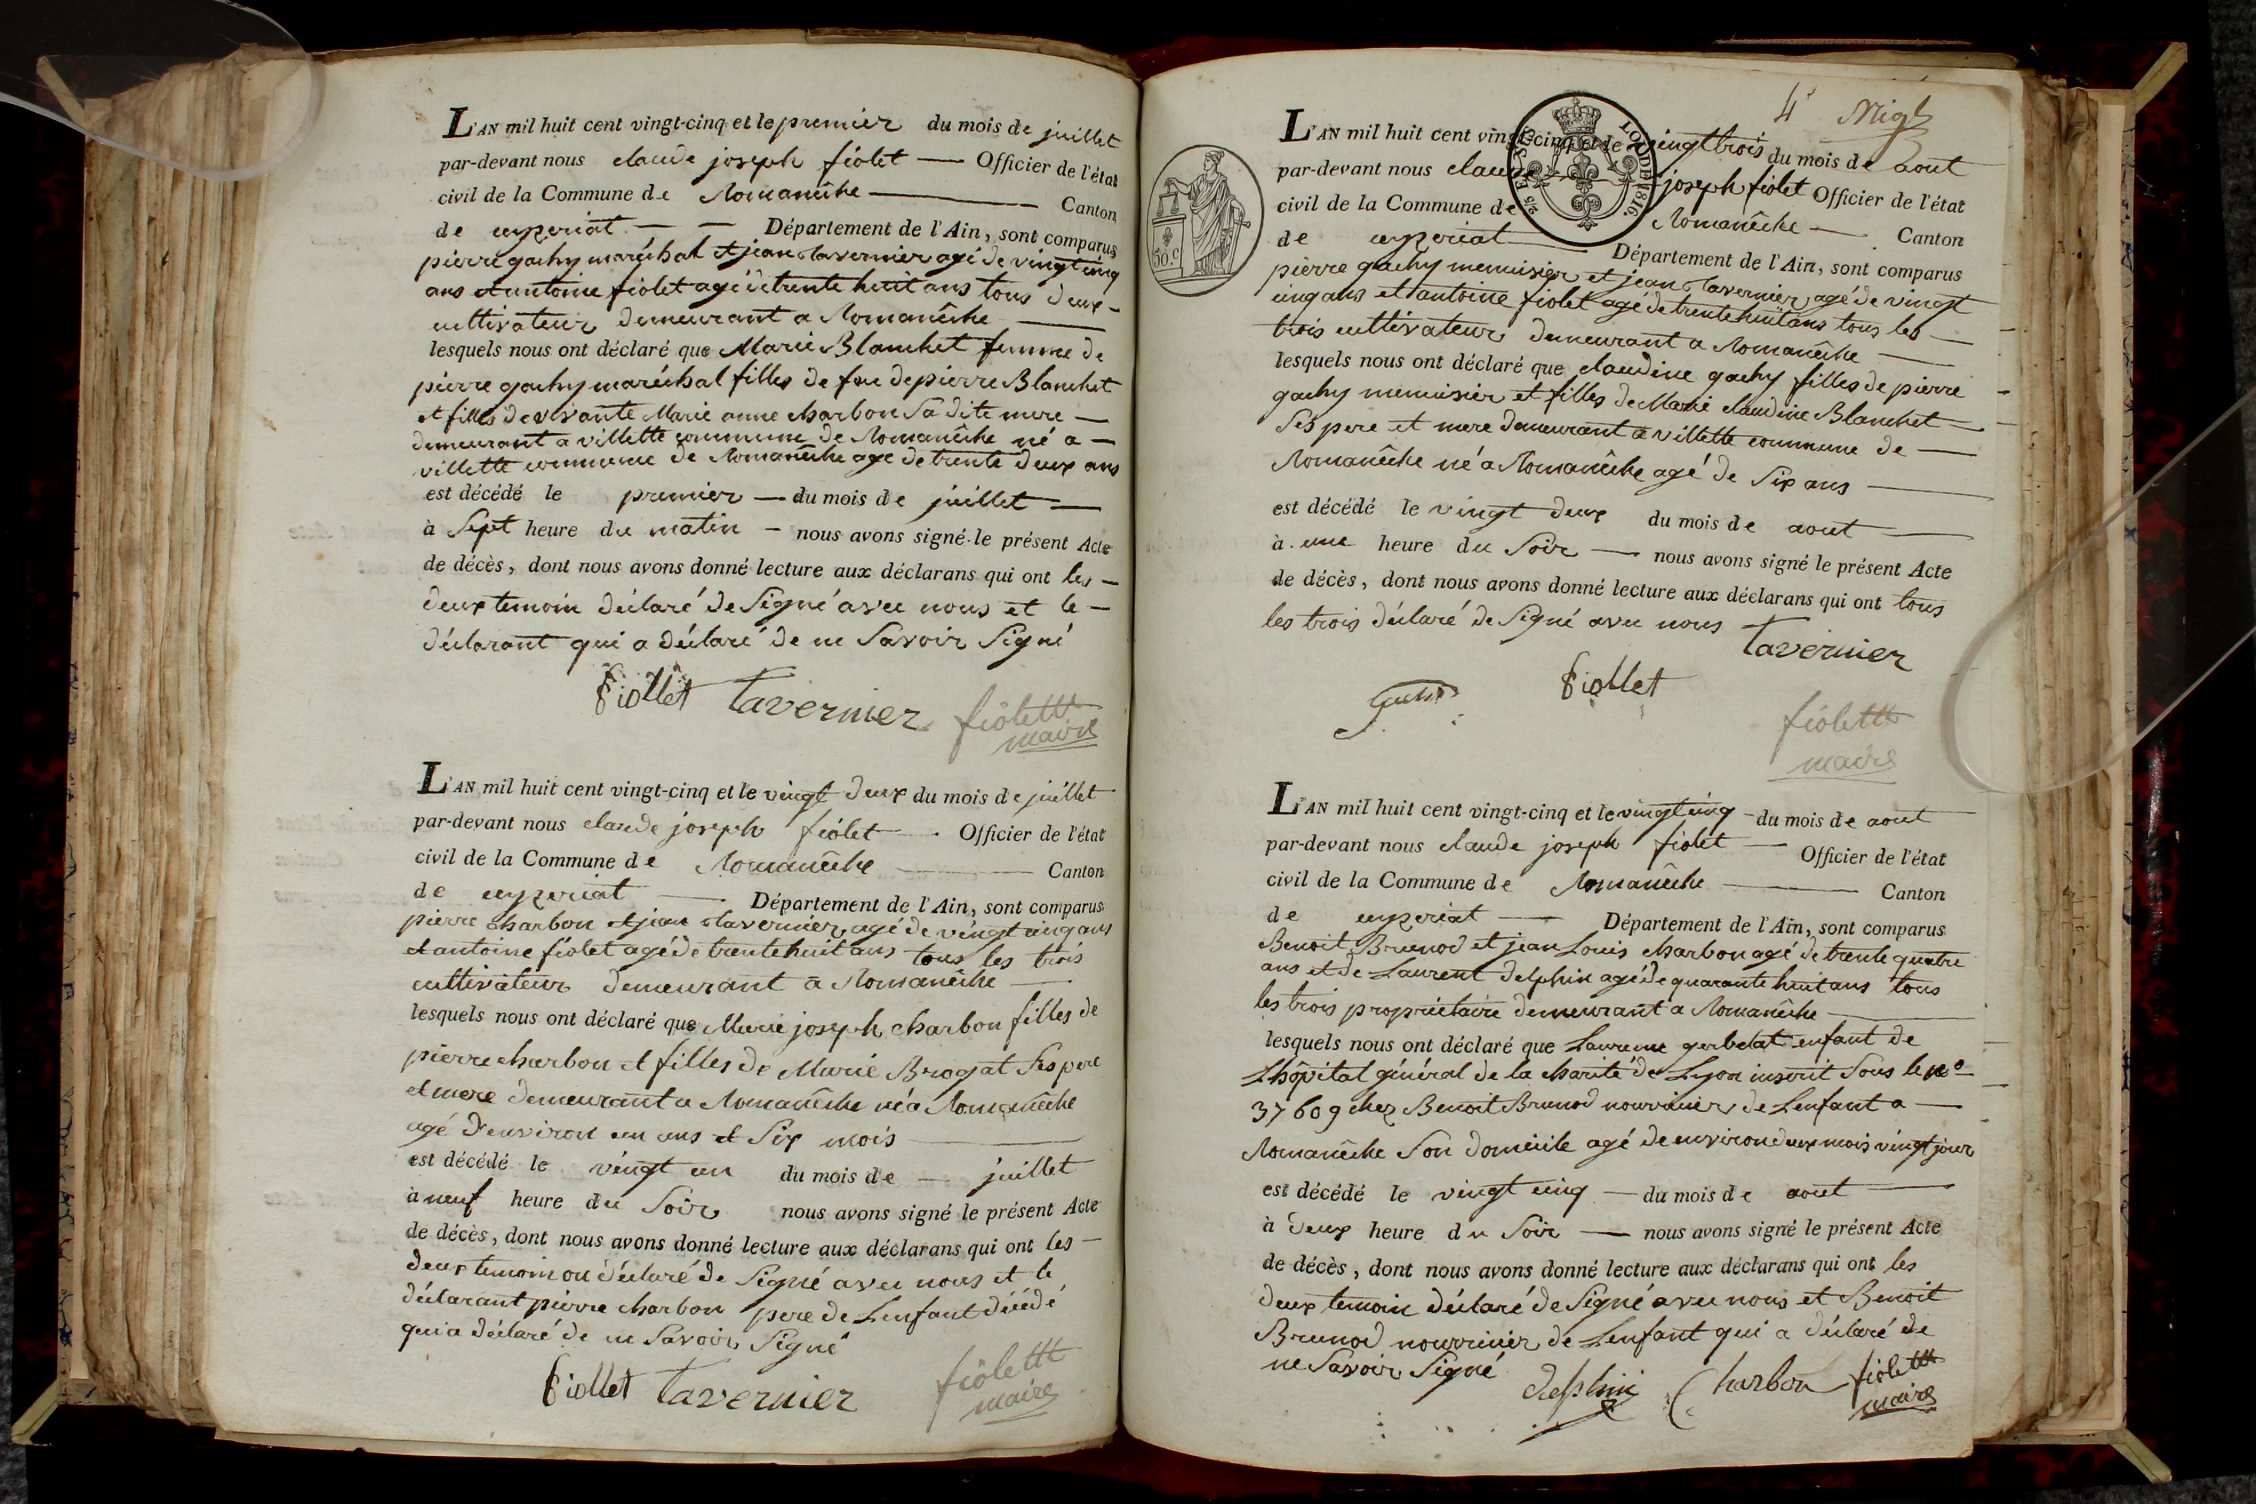 L'AN mil huit cent vingt-cinq et le premier du mois de juillet
par-devant nous claude joseph fiolet — Officier de l'état
civil de la Commune de Romanêche — Canton
de ceyzeriat — — Département de l'Ain, sont comparus
pierre gachy maréchal et jean tavernier agé de vingt cinq
ans et antoine fiolet agé de trente huit ans tous deux —
cultivateur demeurant a Romanêche —
lesquels nous ont déclaré que Marie Blanchet femme de
pierre gachy maréchal filles de feu de pierre Blanchet
et filles de vivante Marie anne charbon Sa dite mere —
demeurant a villette commune de Romanêche né a —
villette commune de Romanêche age de trente deux ans
est décédé le premier — du mois de juillet —
à Sept heure du matin — nous avons signé le présent Acte
de décès, dont nous avons donné lecture aux déclarans qui ont les —
deux temoin déclaré de Signé avec nous et le —
déclarant qui a déclaré de ne Savoir Signé
fiollet tavernier fiolet
maire
L'AN mil huit cent vingt-cinq et le vingt deux du mois de juillet
par-devant nous claude joseph fiolet — Officier de l'état
civil de la Commune de Romanêche — Canton
de ceyzeriat — Département de l'Ain, sont comparus
pierre charbon et jean tavernier agé de vingt cinq ans
et antoine fiolet agé de trente huit ans tous les trois
cultivateur demeurant a Romanêche —
lesquels nous ont déclaré que Marie joseph charbon filles de
pierre charbon et filles de Marie Brogat Ses pere
et mere demeurant a Romanêche né a Romanêche
agé d'environ un ans et Six mois —
est décédé le vingt un du mois de — juillet
à neuf heure du Soir nous avons signé le présent Acte
de décès, dont nous avons donné lecture aux déclarans qui ont les —
deux temoin on déclaré de Signé avec nous et le
déclarant pierre charbon pere de Lenfant décédé
qui a déclaré de ne Savoir Signé
fiollet tavernier fiolet
maire
4e
L'AN mil huit cent vingt-cinq et le vingt trois du mois de aout
par-devant nous claude joseph fiolet Officier de l'état
civil de la Commune de Romanêche — Canton
de ceyzeriat — Département de l'Ain, sont comparus
pierre gachy menuisier et jean tavernier agé de vingt
cinq ans et antoine fiolet agé de trente huit ans tous les —
trois cultivateur demeurant a Romanêche —
lesquels nous ont déclaré que claudine gachy filles de pierre
gachy menuisier et filles de Marie claudine Blanchet —
Ses pere et mere demeurant a villette commune de —
Romanêche né a Romanêche agé de Six ans —
est décédé le vingt deux du mois de aout —
à une heure du Soir — nous avons signé le présent Acte
de décès, dont nous avons donné lecture aux déclarans qui ont tous
les trois déclaré de Signé avec nous
tavernier
fiollet
fiolet
maire
50.C
LOI DE 1816.
L'AN mil huit cent vingt-cinq et le vingt cinq — du mois de aout
par-devant nous claude joseph fiolet — Officier de l'état
civil de la Commune de Romanêche — Canton
de ceyzeriat — Département de l'Ain, sont comparus
Benoit Brunod et jean Louis charbon agé de trente quatre
ans et de Laurent delphin agé de quarante huit ans tous
les trois proprietaire demeurant a Romanêche —
lesquels nous ont déclaré que Laurenne gerbelat enfant de
Lhôpital général de la charité de Lyon inscrit Sous le no
37609 chez Benoit Brunod nourricier de Lenfant a —
Romanêche Son domicile agé de environ deux mois vingt jour
est décédé le vingt cinq — du mois de aout —
à deux heure du Soir — nous avons signé le présent Acte
de décès, dont nous avons donné lecture aux déclarans qui ont les
deux temoin déclaré de Signé avec nous et Benoit
Brunod nourricier de Lenfant qui a déclaré de
ne Savoir Signé
delphin Charbon fiolet
maire